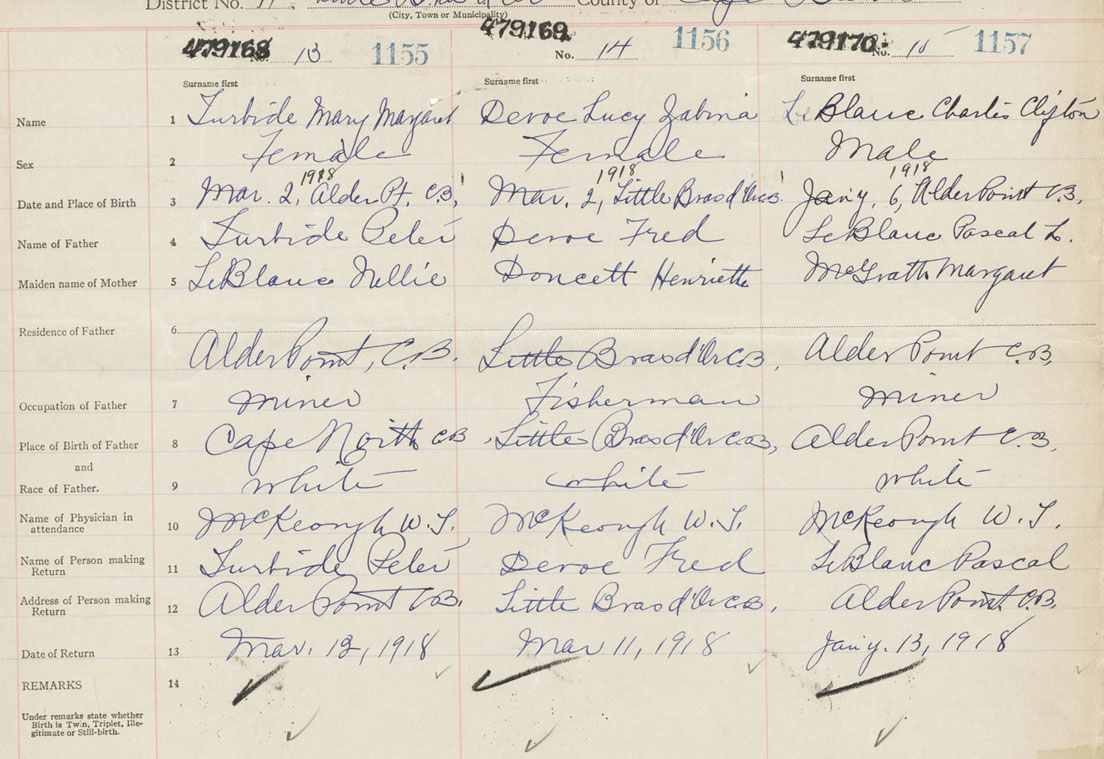 District No. 11 County of Cape
(City, Town or Municipality)
479168 479169 479170
No. 13 1155 No. 14 1156 No. 15 1157
Surname first Surname first Surname first
Name 1 Turbide Mary Margaret Devoe Lucy Zabina LeBlanc Charles Clifton
Sex 2 Female Female Male
1918 1918 1918
Date and Place of Birth 3 Mar. 2, Alder Pt. C.B. Mar. 2, Little Bras d'Or C.B. Jan'y. 6, Alder Point C.B.
Name of Father 4 Turbide Peter Devoe Fred LeBlanc Pascal L.
Maiden name of Mother 5 LeBlanc Nellie Doncett Henriette McGrath Margaret
Residence of Father 6
Alder Point, C.B. Little Bras d'Or C.B. Alder Point C.B.
Occupation of Father 7 Miner Fisherman Miner
Place of Birth of Father 8 Cape North C.B. Little Bras d'Or C.B., Alder Point C.B.
and
Race of Father. 9 white white white
Name of Physician in
attendance 10 McKeough W. J. McKeough W. J. McKeough W. J.
Name of Person making
Return 11 Turbide Peter Devoe Fred LeBlanc Pascal
Address of Person making
Return 12 Alder Point C.B. Little Bras d'Or C.B. Alder Point C.B.
Date of Return 13 Mar. 12, 1918 Mar 11, 1918 Jan'y. 13, 1918
REMARKS 14
Under remarks state whether
Birth is Twin, Triplet, Ille-
gitimate or Still-birth.